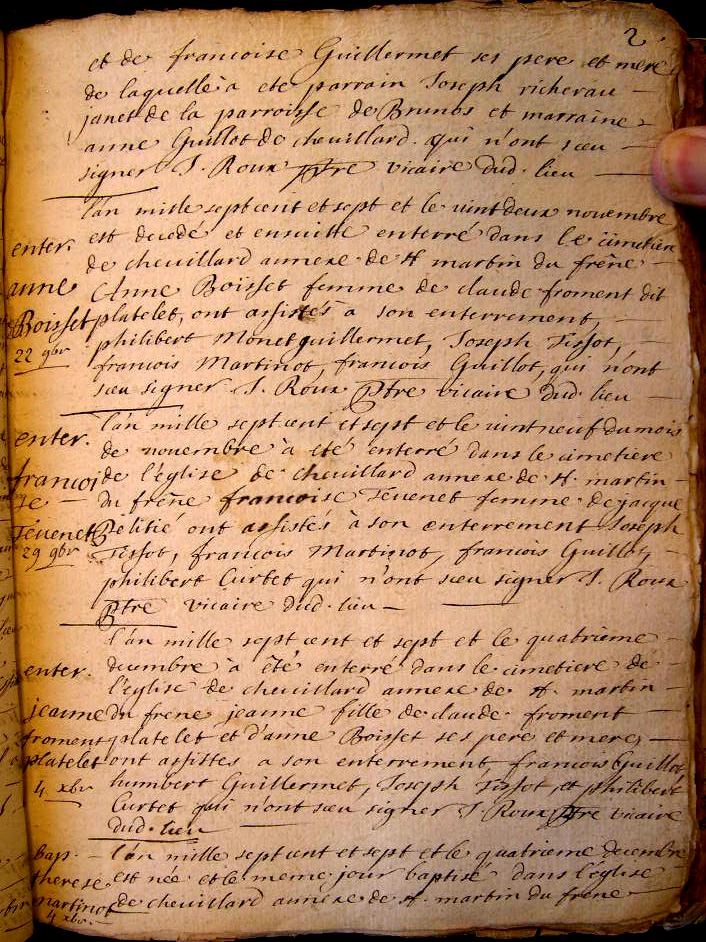 2
et de francoise Guillermet ses pere et mere
de laquelle à eté parrain Joseph richerau
janet de la parroisse de Brunos et marraine
anne Guillot de cheuillard. qui n'ont sceu
signer J. Roux ptre vicaire dud. lieu
l'an mille sept cent et sept et le vint deux novembre
est decedé et ensuitte enterré dans le cimetiere
de cheuillard annexe de st martin du frêne
Anne Boisset femme de claude froment dit
platelet, ont assistés à son enterrement,
philibert Monet guillermet, Joseph Tissot,
francois Martinot, francois Guillot, qui n'ont
sceu signer J. Roux ptre vicaire dud. lieu
enter.
anne
Boisset
22 9br
l'an mille sept cent et sept et le vint neuf du mois
de novembre à eté enterré dans le cimetiere
de l'église de cheuillard annexe de st. martin
du frêne francoise Teuenet femme de jacque
Pelitie ont assistés à son enterrement Joseph
Tissot, francois Martinot, francois Guillot,
philibert Curtet qui n'ont sceu signer J. Roux
ptre vicaire dud. lieu
enter.
francoi
se
Teuenet
29 9br
l'an mille sept cent et sept et le quatrieme
decembre à été enterré dans le cimetiere de
l'église de cheuillard annexe de st. martin
du frene jeanne fille de claude froment
platelet et d'anne Boisset ses pere et mere,
ont assistes a son enterrement francois Guillot,
humbert Guillermet, Joseph Tissot, et philibert
Curtet qui n'ont sceu signer J. Roux ptre vicaire
dud. lieu
enter.
jeanne
froment
platelet
4 xbr
l'an mille sept cent et sept et le quatrieme decembre
est née et le meme jour baptisé dans l'église
de cheuillard annexe de st. martin du frene
bap.
therese
martinot
4 xbr